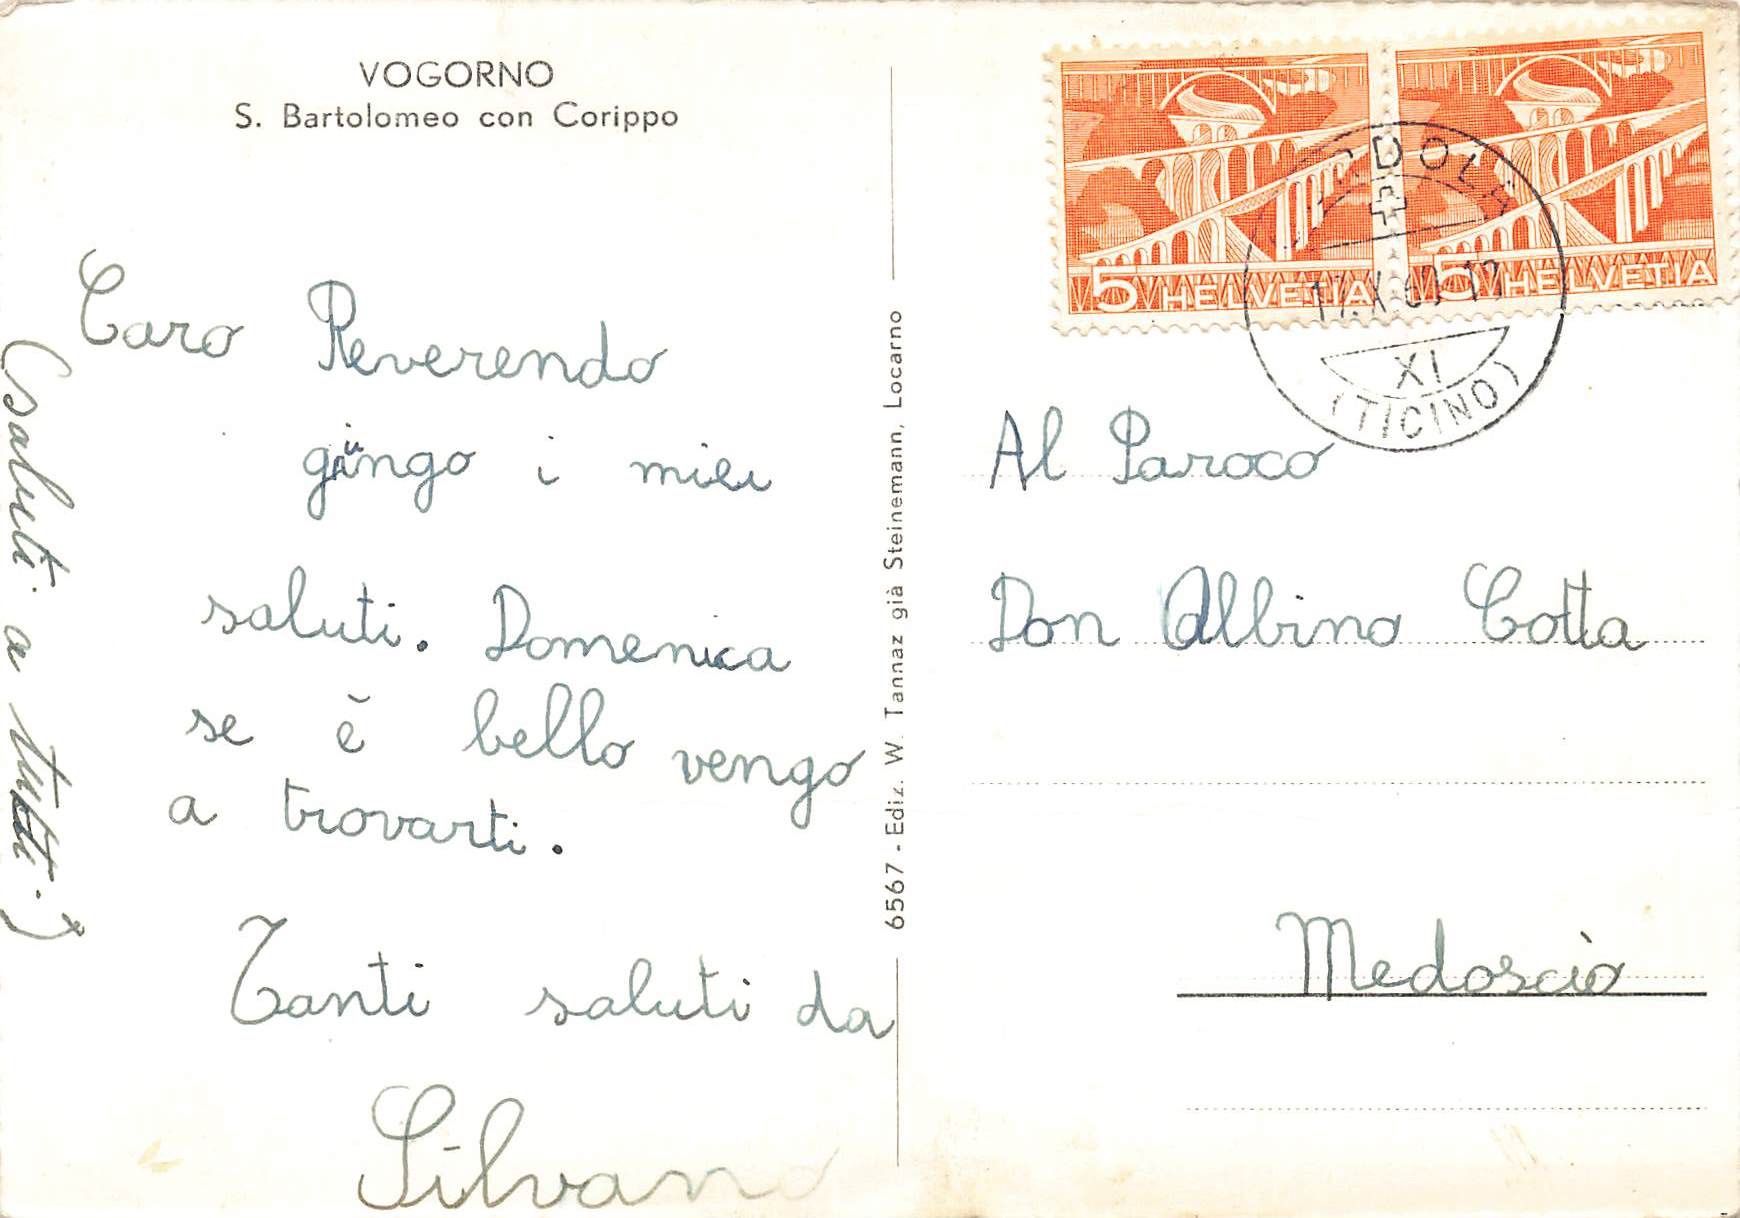 VOGORNO
S. Bartolomeo con Corippo
Caro Reverendo
giungo i miei
saluti. Domenica
se è bello vengo
a trovarti.
Tanti saluti da
Silvano
(saluti a tutti.)
6567 - Ediz. W. Tannaz già Steinemann, Locarno
5 HELVETIA
5 HELVETIA
XI
(TICINO)
Al Paroco
Don Albino Cotta
Medoscio